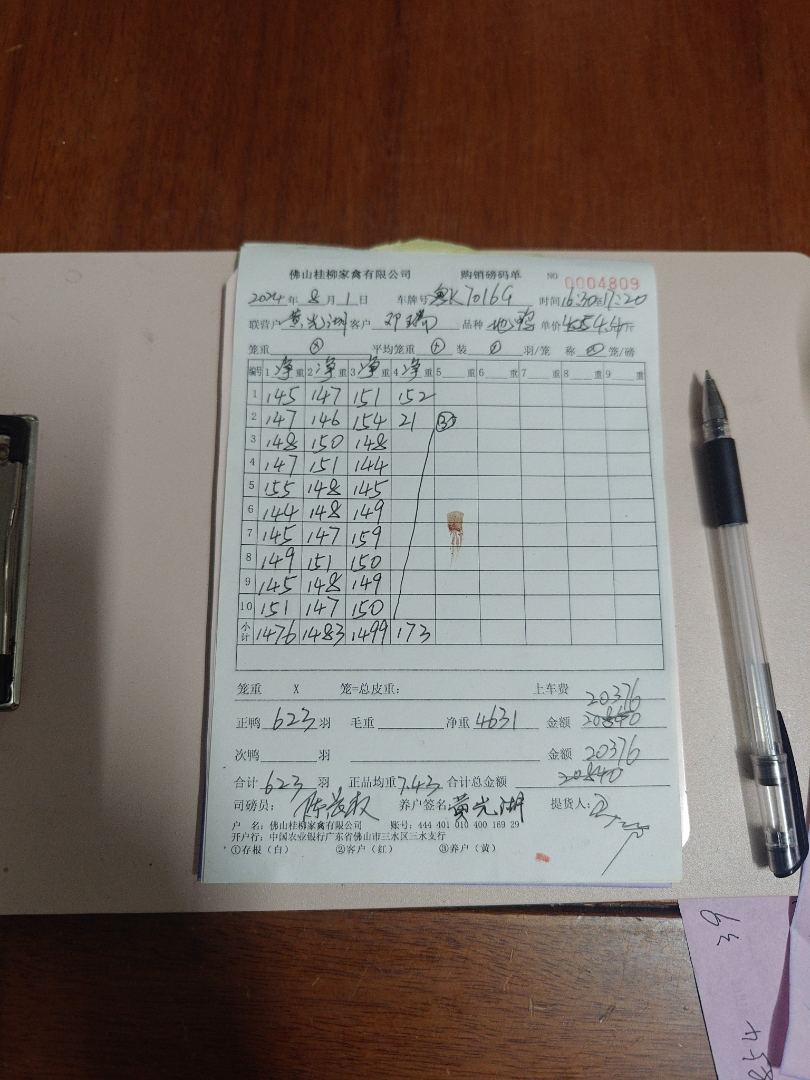 佛山桂柳家禽有限公司 购销磅码单 NO 0004809
2024年8月1日 车牌号粤K7016G 时间16:30至17:20
联营户黄光湖 客户邓瑞 品种 单价 斤
笼重 平均笼重 装 羽/笼 称四笼/磅
编号 1净重 2净重 3净重 4净重 5 重 6 重 7 重 8 重 9 重
1 145 147 151 152
2 147 146 154 21
3 148 150 148
4 147 151 144
5 155 148 145
6 144 148 149
7 145 147 159
8 149 151 150
9 145 148 149
10 151 147 150
小计 1476 1483 1499 173
笼重 X 笼=总皮重: 上车费
20376
正鸭623羽 毛重 净重4631 金额20840
次鸭 羽 金额20376
合计623羽 正品均重7.43 合计总金额20840
司磅员: 养户签名:黄光湖 提货人:
户 名: 佛山桂柳家禽有限公司 账号: 444 401 010 400 169 29
开户行: 中国农业银行广东省佛山市三水区三水支行
①存根(白) ②客户(红) ③养户(黄)
63